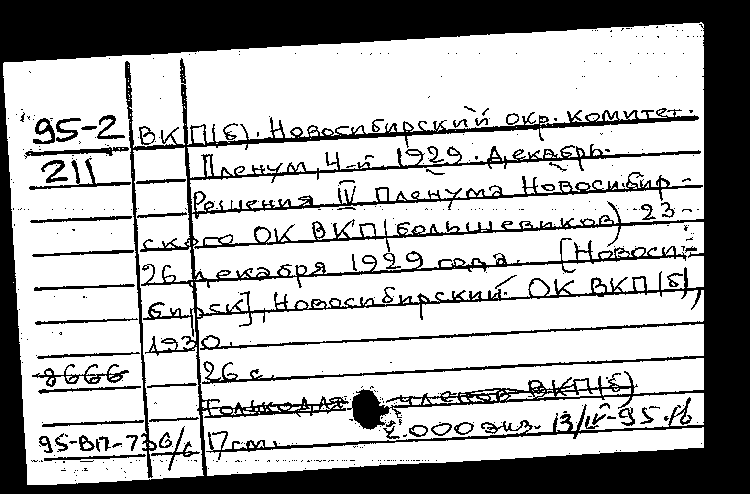 95-2 ВКП(б). Новосибирский окр. комитет.
211 Пленум, 4-й. 1929. Декабрь.
Решения IV пленума Новосибир-
ского ОК ВКП(большевиков) 23-
26 декабря 1929 года. [Новоси-
бирск], Новосибирский ОК ВКП(б),
1930.
8666 26 с.
Только для членов ВКП(б)
95-ВП-730 б/с 17 см. 2.000 экз. 13/IV-95.